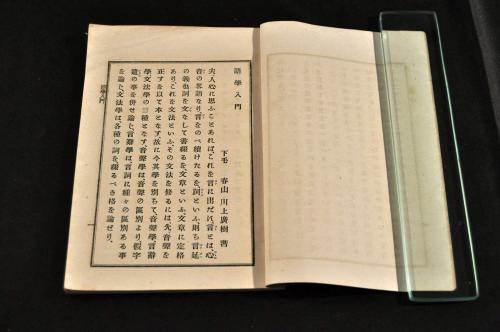 語學入門
下毛 春山 川上廣樹 著
夫人心に思ふことあれば、これを言に出だす、言とは、心
音の畧語なり、言をのべ續けたるを、詞といふ、則ち言延
の義也、詞を文なして書綴るを、文章といふ、文章に定格
あり、これを文法といふ、その文法を修るには、先音聲を
正すを以て本となす、故に今其學を別ちて、音聲學言辭
學文法學の三種となす、音聲學は、音聲の區別より、假字
遣の事を併せ論じ、言辭學は、言詞に種々の區別ある事
を論じ、文法學は、各種の詞を綴るべき格を論ぜり、
語學入門
一